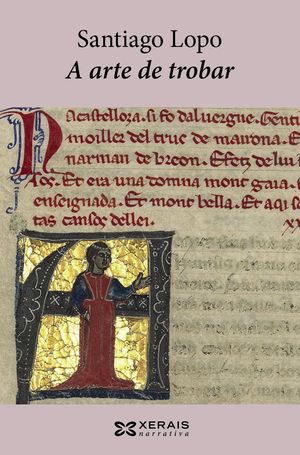 Santiago Lopo
A arte de trobar
Na castelloza. si fo daluergne. Gentil
moiller del truc de mairona. E
narman de breon. E fetz de lui
sos. Et era una domna mout gaia.
enseignada. Et mout bella. Et aqi so
tas cansos dellei.
XERAIS
narrativa